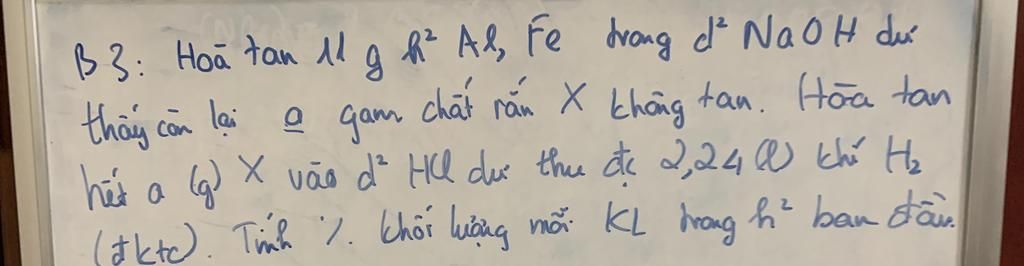 B3: Hoà tan 11 g h² Al, Fe trong d² NaOH dư
thấy còn lại a gam chất rắn X không tan. Hòa tan
hết a (g) X vào d² HCl dư thu đc 2,24 (l) khí H₂
(đktc). Tính % khối lượng mỗi KL trong h² ban đầu.